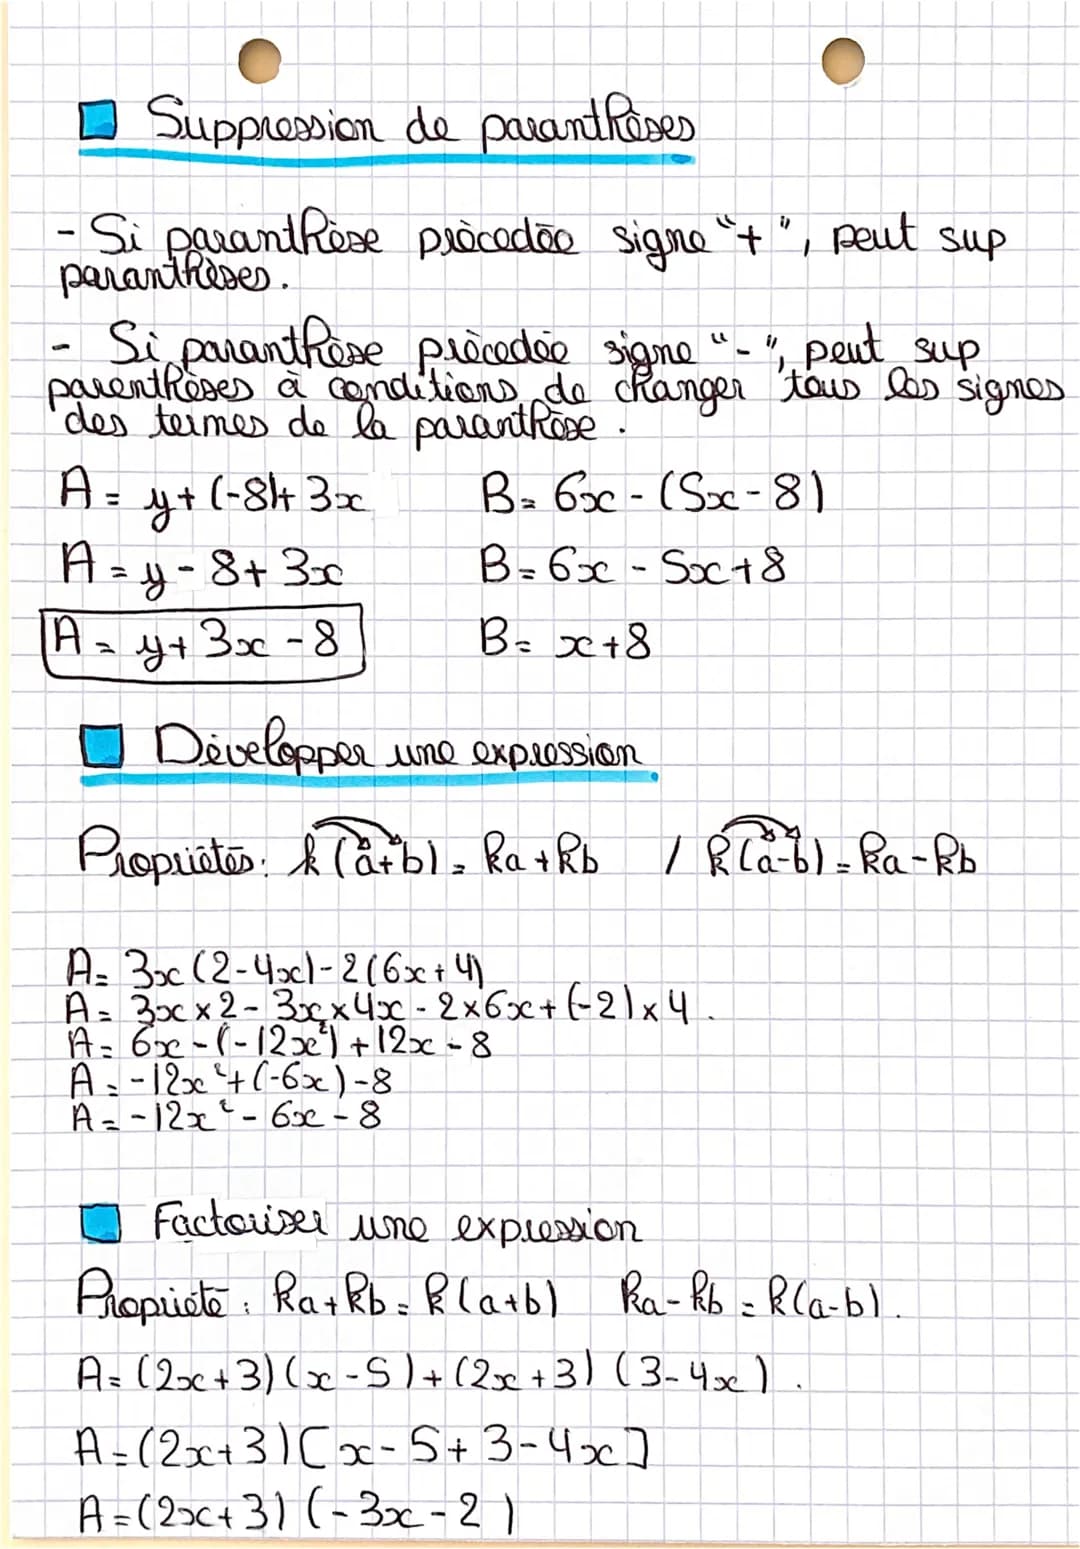 Suppression de paranthèses
- Si paranthèse précédée signe "+", peut sup
paranthèses.
- Si paranthèse précédée signe "-", peut sup
parenthèses à conditions de changer tous les signes
des termes de la paranthèse.
A = y + (-8) + 3x B = 6x - (5x - 8)
A = y - 8 + 3x B = 6x - 5x + 8
A = y + 3x - 8 B = x + 8
Développer une expression
Propriétés : k (a+b) = ka + kb / k(a-b) = ka - kb
A = 3x (2 - 4x) - 2 (6x + 4)
A = 3x × 2 - 3x × 4x - 2 × 6x + (-2) × 4.
A = 6x - (-12x²) + 12x - 8
A = -12x² + (-6x) - 8
A = -12x² - 6x - 8
Factoriser une expression
Propriété : ka + kb = k (a+b) ka - kb = k(a-b).
A = (2x + 3) (x - 5) + (2x + 3) (3 - 4x).
A = (2x + 3) [x - 5 + 3 - 4x]
A = (2x + 3) (-3x - 2)